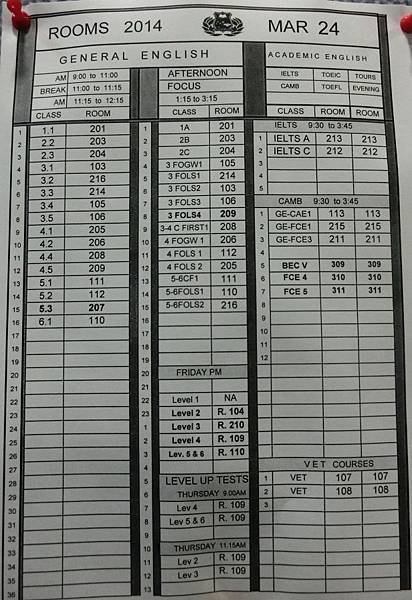 ROOMS 2014 MAR 24
GENERAL ENGLISH
AM 9:00 to 11:00
BREAK 11:00 to 11:15
AM 11:15 to 12:15
CLASS ROOM
1 1.1 201
2 2.2 203
3 2.3 204
4 3.1 103
5 3.2 216
6 3.3 214
7 3.4 105
8 3.5 106
9 4.1 205
10 4.2 206
11 4.4 208
12 4.5 209
13 5.1 111
14 5.2 112
15 5.3 207
16 6.1 110
17
18
19
20
21
22
23
24
25
26
27
28
29
30
31
32
33
34
35
36
AFTERNOON
FOCUS
1:15 to 3:15
CLASS ROOM
1 1A 201
2 2B 203
3 2C 204
4 3 FOGW1 105
5 3 FOLS1 214
6 3 FOLS2 103
7 3 FOLS3 106
8 3 FOLS4 209
9 3-4 C FIRST1 208
10 4 FOGW 1 206
11 4 FOLS 1 112
12 4 FOLS 2 205
13 5-6CF1 111
14 5-6FOLS1 110
15 5-6FOLS2 216
16
17
18
19
20 FRIDAY PM
Level 1 NA
Level 2 R. 104
Level 3 R. 210
Level 4 R. 109
Lev. 5 & 6 R. 110
LEVEL UP TESTS
THURSDAY 9.00AM
Lev 4 R. 109
Lev 5 & 6 R. 109
THURSDAY 11.15AM
Lev 2 R. 109
Lev 3 R. 109
ACADEMIC ENGLISH
IELTS TOEIC TOURS
CAMB TOEFL EVENING
CLASS ROOM ROOM
IELTS 9:30 to 3:45
1 IELTS A 213 213
2 IELTS C 212 212
3
4
5
CAMB 9:30 to 3:45
1 GE-CAE1 113 113
2 GE-FCE1 215 215
3 GE-FCE3 211 211
4
5 BEC V 309 309
6 FCE 4 310 310
7 FCE 5 311 311
8
9
10
11
12
VET COURSES
1 VET 107 107
2 VET 108 108
3